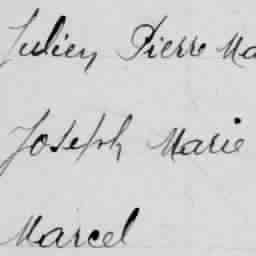 Julien Pierre Ma
Joseph Marie
Marcel